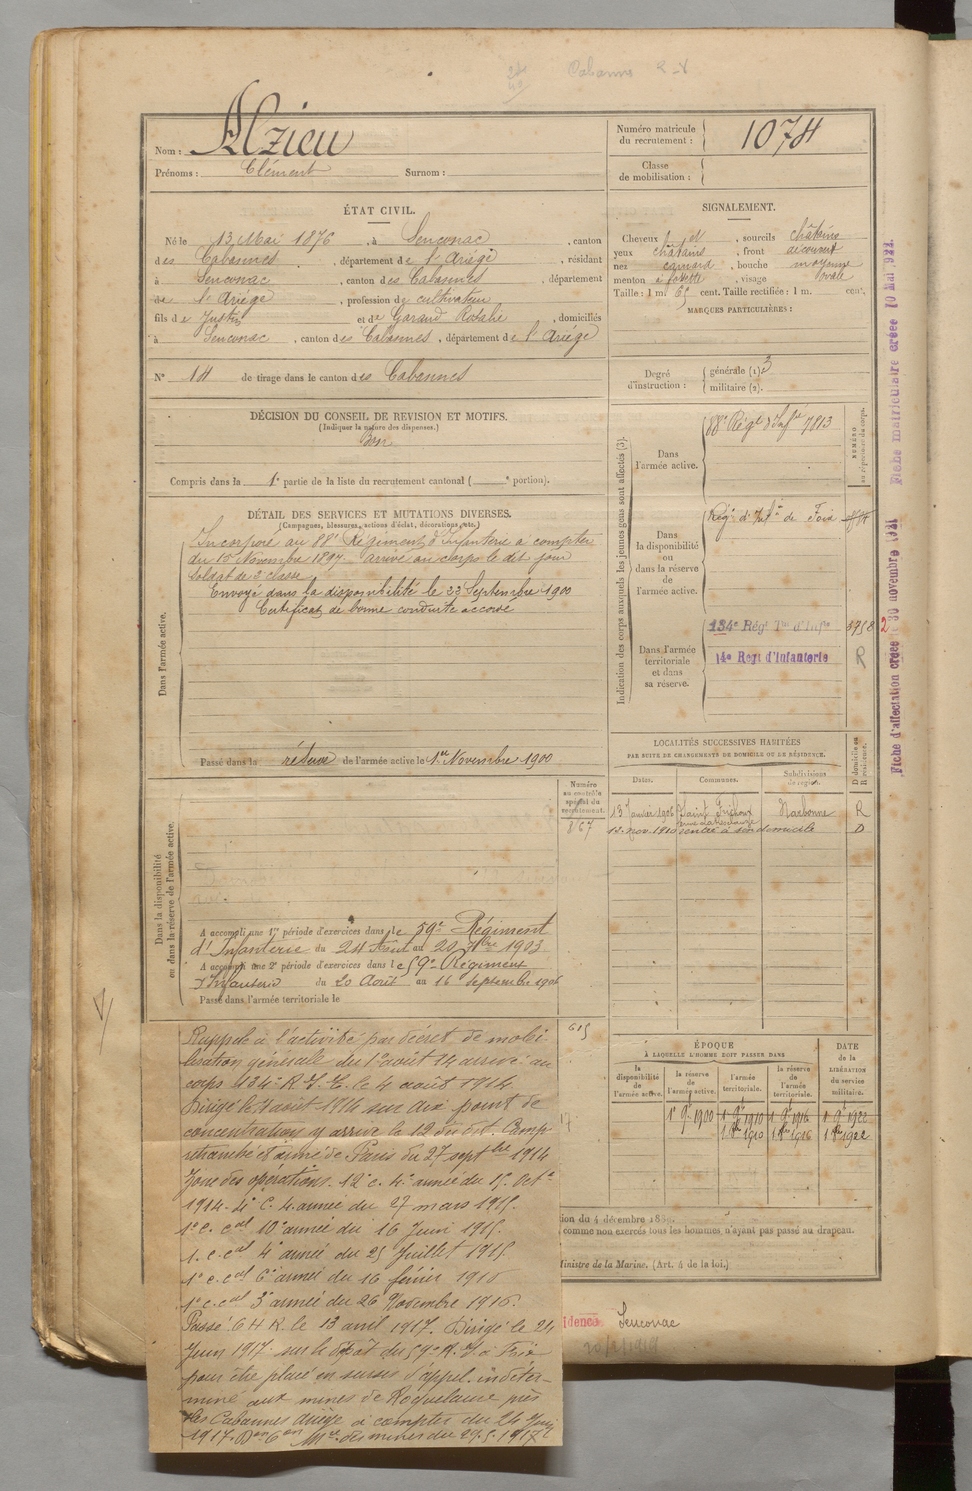 Cabannes 2-V
Nom : Alzieu
Prénoms : Clément Surnom :
Numéro matricule du recrutement : 1074
Classe de mobilisation :
ÉTAT CIVIL.
Né le 13 Mai 1876, à Senconac, canton
des Cabannes, département de l'Ariège, résidant
à Senconac, canton des Cabannes, département
de l'Ariège, profession de cultivateur
fils de Justin et de Garaud Rosalie, domiciliés
à Senconac, canton des Cabannes, département de l'Ariège
N° 14 de tirage dans le canton des Cabannes
SIGNALEMENT.
Cheveux et, sourcils châtains
yeux châtains, front découvert
nez camard, bouche moyenne
menton à fossette, visage ovale
Taille : 1 m. 65 cent. Taille rectifiée : 1 m. cent.
MARQUES PARTICULIÈRES :
Degré d'instruction : générale (1) 3
militaire (2).
DÉCISION DU CONSEIL DE REVISION ET MOTIFS.
(Indiquer la nature des dispenses.)
Bon
Compris dans la 1e partie de la liste du recrutement cantonal ( e portion).
DÉTAIL DES SERVICES ET MUTATIONS DIVERSES.
(Campagnes, blessures, actions d'éclat, décorations, etc.)
Dans l'armée active.
Incorporé au 88e Régiment d'Infanterie à compter
du 15 Novembre 1897 arrivé au corps le dit jour
soldat de 2e classe
Envoyé dans la disponibilité le 22 Septembre 1900
Certificat de bonne conduite accordé
Passé dans la réserve de l'armée active le 1er Novembre 1900
Indication des corps auxquels les jeunes gens sont affectés (3).
NUMÉRO au répertoire du corps.
Dans l'armée active.
88e Régt d'Infie 7813
Dans la disponibilité ou dans la réserve de l'armée active.
Régt d'Infie de Foix
Dans l'armée territoriale et dans sa réserve.
134e Régt Tal d'Infie 3758
14e Regt d'Infanterie R
Fiche d'affectation créée le 30 novembre 1921
Fiche matriculaire créée 10 Mai 1922
LOCALITÉS SUCCESSIVES HABITÉES
PAR SUITE DE CHANGEMENTS DE DOMICILE OU DE RÉSIDENCE.
Dates. Communes. Subdivisions de région. D domicile ou R résidence.
13 Janvier 1906 Saint Frichoux Narbonne R
12 nov. 1910 rentré à son domicile D
Dans la disponibilité ou dans la réserve de l'armée active.
Numéro au contrôle spécial du recrutement.
867
A accompli une 1re période d'exercices dans le 59e Régiment
d'Infanterie du 24 Août au 20 7bre 1903
A accompli une 2e période d'exercices dans le 59e Régiment
d'Infanterie du 20 Août au 16 Septembre 1906
Passé dans l'armée territoriale le
615
Rappelé à l'activité par décret de mobi-
lisation générale du 1er août 14 arrivé au
corps 134e R.I.T. le 4 août 1914
Dirigé le août 1914 sur dix point de
concentration y arrive le 12 du dit. Camp
retranché et armée de Paris du 27 septbre 1914
Zone des opérations. 12e c. 4e armée du 15 Octe
1914. 4e C. 4 armée du 27 mars 1915.
1er c. cal 10e armée du 16 Juin 1915.
1. c. cal 4e armée du 25 Juillet 1915
1er c. cal 6e armée du 16 février 1916
1er c. cal 3e armée du 26 Novembre 1916.
Passé G H R. le 13 avril 1917. Dirigé le 24
Juin 1917 sur le dépôt du 59e R.I. à Foix
pour être placé en sursis d'appel indéter-
miné aux mines de Roquelaure près
les Cabannes Ariège à compter du 24 Juin
1917. Don mines du 29.5.1917
ÉPOQUE
À LAQUELLE L'HOMME DOIT PASSER DANS
DATE de la LIBÉRATION du service militaire.
la disponibilité de l'armée active. la réserve de l'armée active. l'armée territoriale. la réserve de l'armée territoriale.
1er 9e 1900 1er 9e 1910 1er 9e 1916 1er 9e 1922
1er 8bre 1910 1er 8bre 1916 1er 8bre 1922
ion du 4 décembre 1889.
comme non exercés tous les hommes n'ayant pas passé au drapeau.
Ministre de la Marine. (Art. 4 de la loi.)
idence Senconac